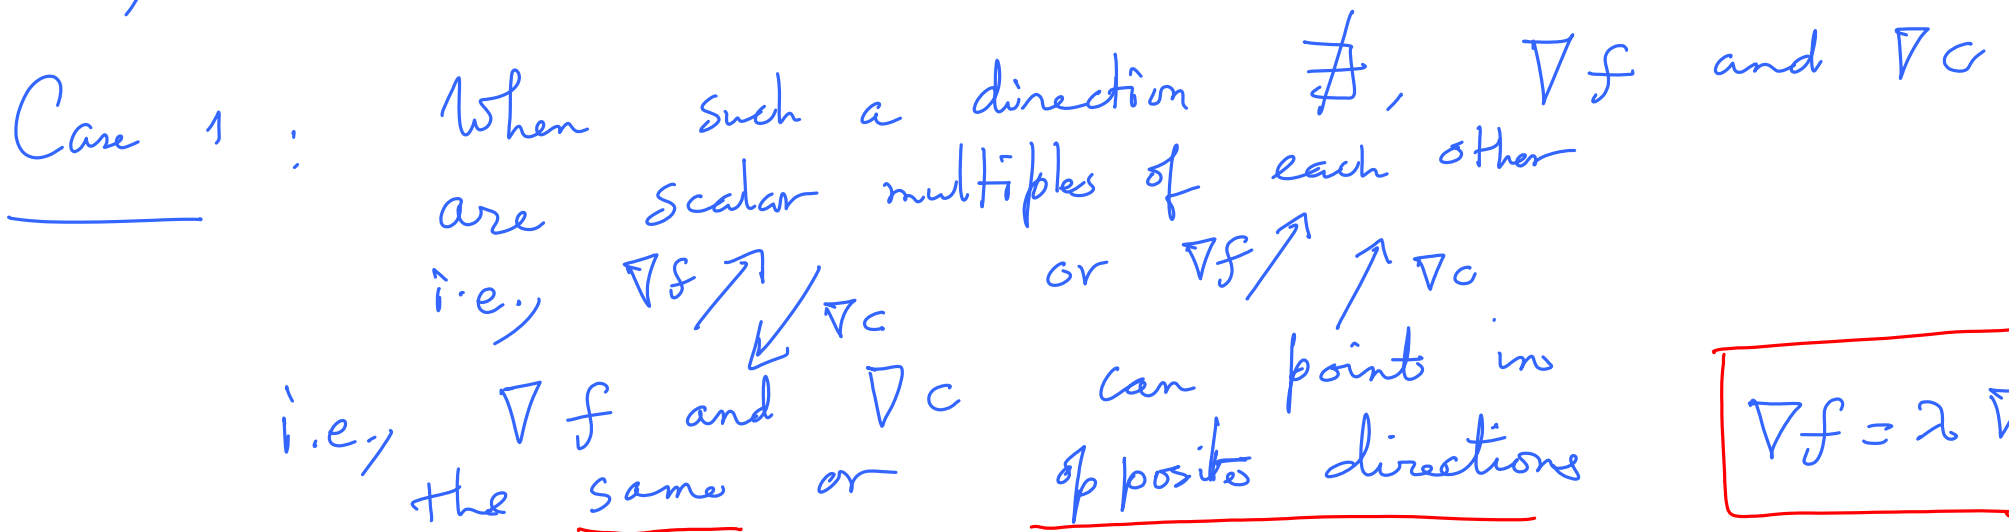 Case 1 : When such a direction ∄, ∇f and ∇c
are scalar multiples of each other
i.e., ∇f ∇c or ∇f ∇c
i.e., ∇f and ∇c can point in
the same or opposite directions
∇f = λ ∇